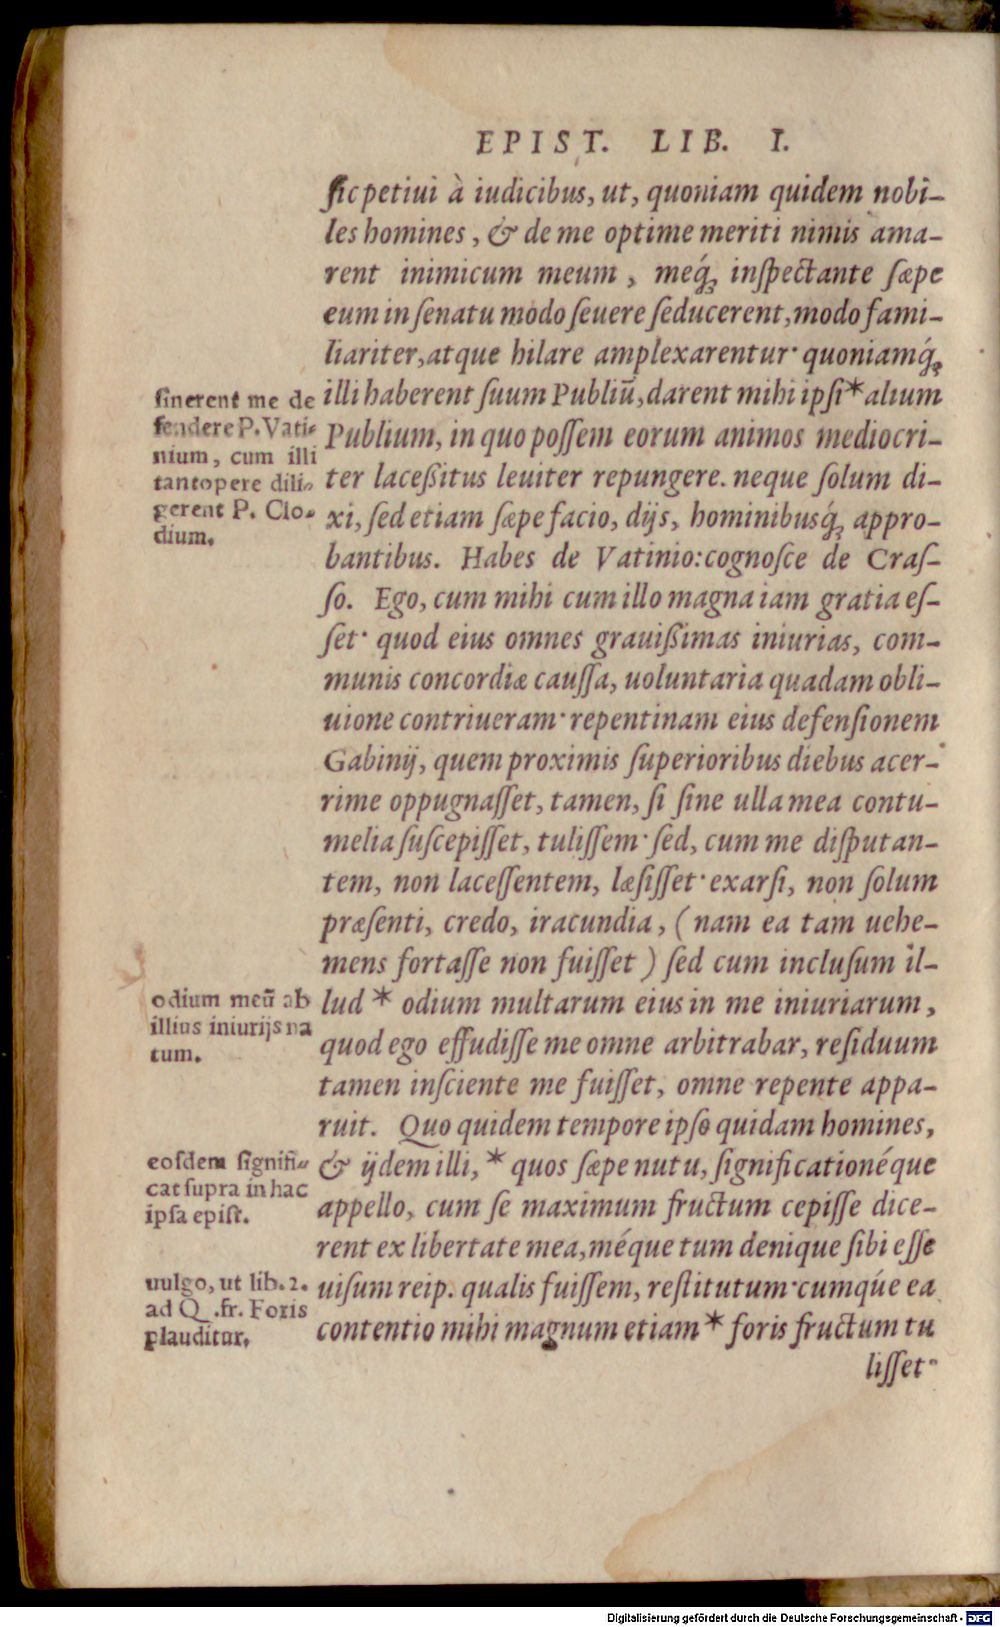 EPIST. LIB. I.
sic petiui à iudicibus, ut, quoniam quidem nobi-
les homines, & de me optime meriti nimis ama-
rent inimicum meum, meq́; inspectante sæpe
eum in senatu modo seuere seducerent, modo fami-
liariter, atque hilare amplexarentur· quoniamq́;
illi haberent suum Publiũ, darent mihi ipsi * alium
Publium, in quo possem eorum animos mediocri-
ter lacessitus leuiter repungere. neque solum di-
xi, sed etiam sæpe facio, dijs, hominibusq́; appro-
bantibus. Habes de Vatinio: cognosce de Cras-
so. Ego, cum mihi cum illo magna iam gratia es-
set· quod eius omnes grauissimas iniurias, com-
munis concordiæ caussa, uoluntaria quadam obli-
uione contriueram· repentinam eius defensionem
Gabinij, quem proximis superioribus diebus acer-
rime oppugnasset, tamen, si sine ulla mea contu-
melia suscepisset, tulissem· sed, cum me disputan-
tem, non lacessentem, læsisset· exarsi, non solum
præsenti, credo, iracundia, (nam ea tam uehe-
mens fortasse non fuisset) sed cum inclusum il-
lud * odium multarum eius in me iniuriarum,
quod ego effudisse me omne arbitrabar, residuum
tamen insciente me fuisset, omne repente appa-
ruit. Quo quidem tempore ipso quidam homines,
& ijdem illi, * quos sæpe nutu, significationéque
appello, cum se maximum fructum cepisse dice-
rent ex libertate mea, méque tum denique sibi esse
uisum reip. qualis fuissem, restitutum· cumq́ue ea
contentio mihi magnum etiam * foris fructum tu
lisset·
sinerent me de
fendere P. Vati-
nium, cum illi
tantopere dili-
gerent P. Clo-
dium.
odium meũ ab
illius iniurijs na
tum.
eosdem signifi-
cat supra in hac
ipsa epist.
uulgo, ut lib. 2.
ad Q. fr. Foris
plauditur.
Digitalisierung gefördert durch die Deutsche Forschungsgemeinschaft - DFG